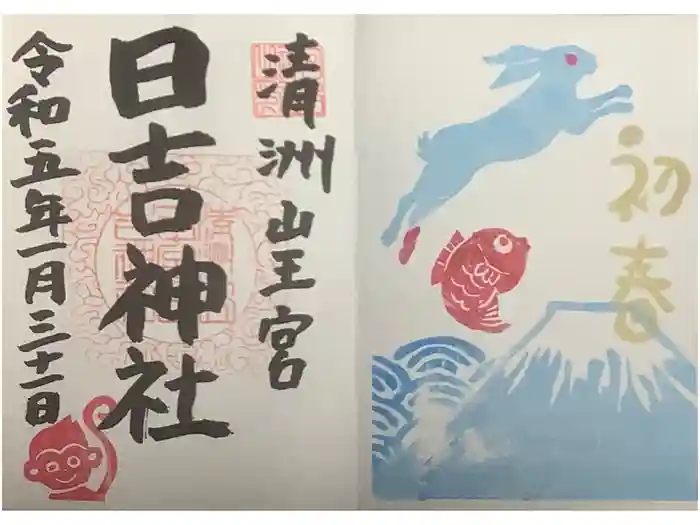 初春
清洲山王宮
日吉神社
令和五年一月三十一日